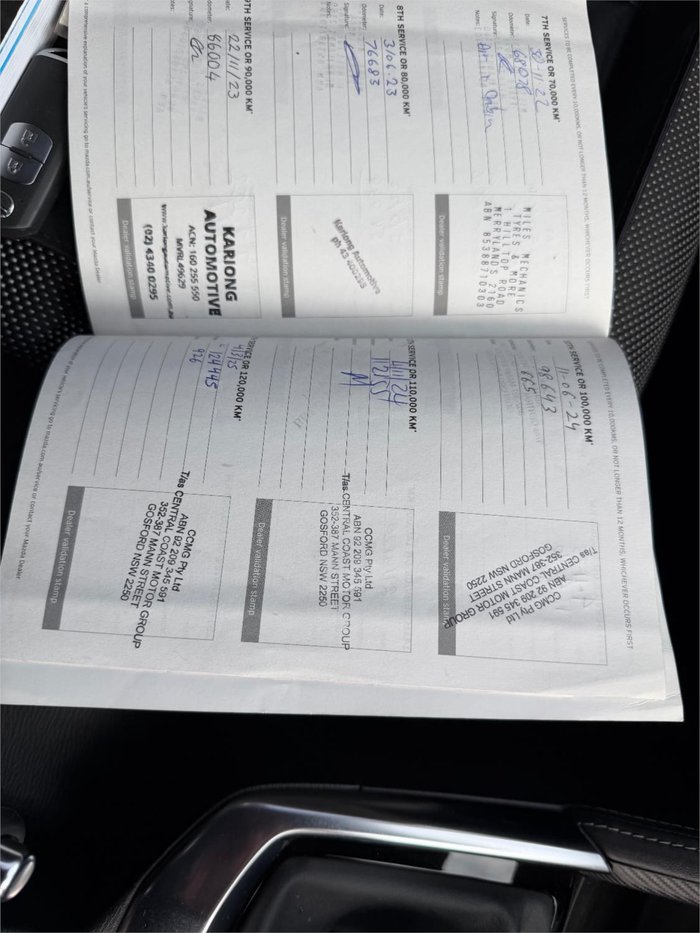 SERVICES TO BE COMPLETED EVERY 10,000KMS, OR NOT LONGER THAN 12 MONTHS, WHICHEVER OCCURS FIRST
7TH SERVICE OR 70,000 KM*
Date: 30-11-22
Odometer: 68078
Signature:
Notes:
MILES MECHANICS
TYRES & MORE
1 HILLTOP ROAD
MERRYLANDS 2160
ABN 85388710303
Dealer validation stamp
8TH SERVICE OR 80,000 KM*
Date: 3/06.23
Odometer: 76683
Signature:
Notes:
Kariong Automotive
Dealer validation stamp
9TH SERVICE OR 90,000 KM*
22/11/23
86004
KARIONG
AUTOMOTIVE
ACN: 160 255 550
MVRL49629
www.kariongautomotive.com.au
(02) 4340 0295
Dealer validation stamp
a comprehensive explanation of your vehicle's servicing go to mazda.com.au/service or contact your Mazda Dealer
TO BE COMPLETED EVERY 10,000KMS, OR NOT LONGER THAN 12 MONTHS, WHICHEVER OCCURS FIRST
SERVICE OR 100,000 KM*
11-06-24
98643
665
CCMG Pty Ltd
ABN 92 209 345 591
T/as CENTRAL COAST MOTOR GROUP
352-387 MANN STREET
GOSFORD NSW 2250
Dealer validation stamp
SERVICE OR 110,000 KM*
4/11/24
CCMG Pty Ltd
ABN 92 209 345 591
T/as CENTRAL COAST MOTOR GROUP
352-387 MANN STREET
GOSFORD NSW 2250
Dealer validation stamp
SERVICE OR 120,000 KM*
4/3/25
124445
926
CCMG Pty Ltd
ABN 92 209 345 591
T/as CENTRAL COAST MOTOR GROUP
352-387 MANN STREET
GOSFORD NSW 2250
Dealer validation stamp
of your vehicle's servicing go to mazda.com.au/service or contact your Mazda Dealer